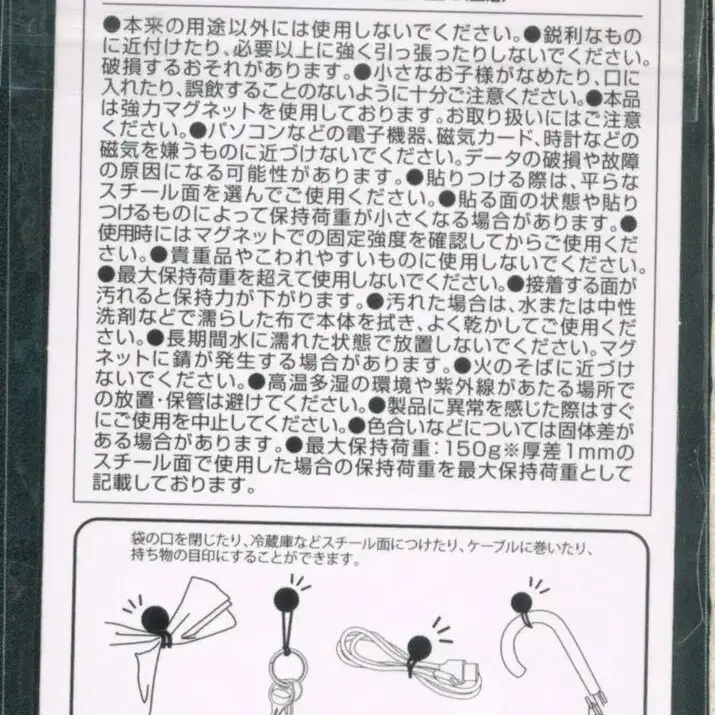 ●本来の用途以外には使用しないでください。●鋭利なもの
に近付けたり、必要以上に強く引っ張ったりしないでください。
破損するおそれがあります。●小さなお子様がなめたり、口に
入れたり、誤飲することのないように十分ご注意ください。●本品
は強力マグネットを使用しております。お取り扱いにはご注意
ください。●パソコンなどの電子機器、磁気カード、時計などの
磁気を嫌うものに近づけないでください。データの破損や故障
の原因になる可能性があります。●貼りつける際は、平らな
スチール面を選んでご使用ください。●貼る面の状態や貼り
つけるものによって保持荷重が小さくなる場合があります。●
使用時にはマグネットでの固定強度を確認してからご使用くだ
さい。●貴重品やこわれやすいものに使用しないでください。
●最大保持荷重を超えて使用しないでください。●接着する面が
汚れると保持力が下がります。●汚れた場合は、水または中性
洗剤などで濡らした布で本体を拭き、よく乾かしてご使用くだ
さい。●長期間水に濡れた状態で放置しないでください。マグ
ネットに錆が発生する場合があります。●火のそばに近づけ
ないでください。●高温多湿の環境や紫外線があたる場所で
の放置・保管は避けてください。●製品に異常を感じた際はすぐ
にご使用を中止してください。●色合いなどについては固体差が
ある場合があります。●最大保持荷重：150g※厚差1mmの
スチール面で使用した場合の保持荷重を最大保持荷重として
記載しております。
袋の口を閉じたり、冷蔵庫などスチール面につけたり、ケーブルに巻いたり、
持ち物の目印にすることができます。